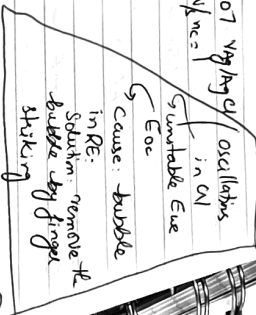 07 VAg/AgCl oscillations
V/s nc=1 in CV
↳ unstable Ewe
↳ Eoc
cause: bubble
in RE.
Solution: remove the
bubble by finger
striking